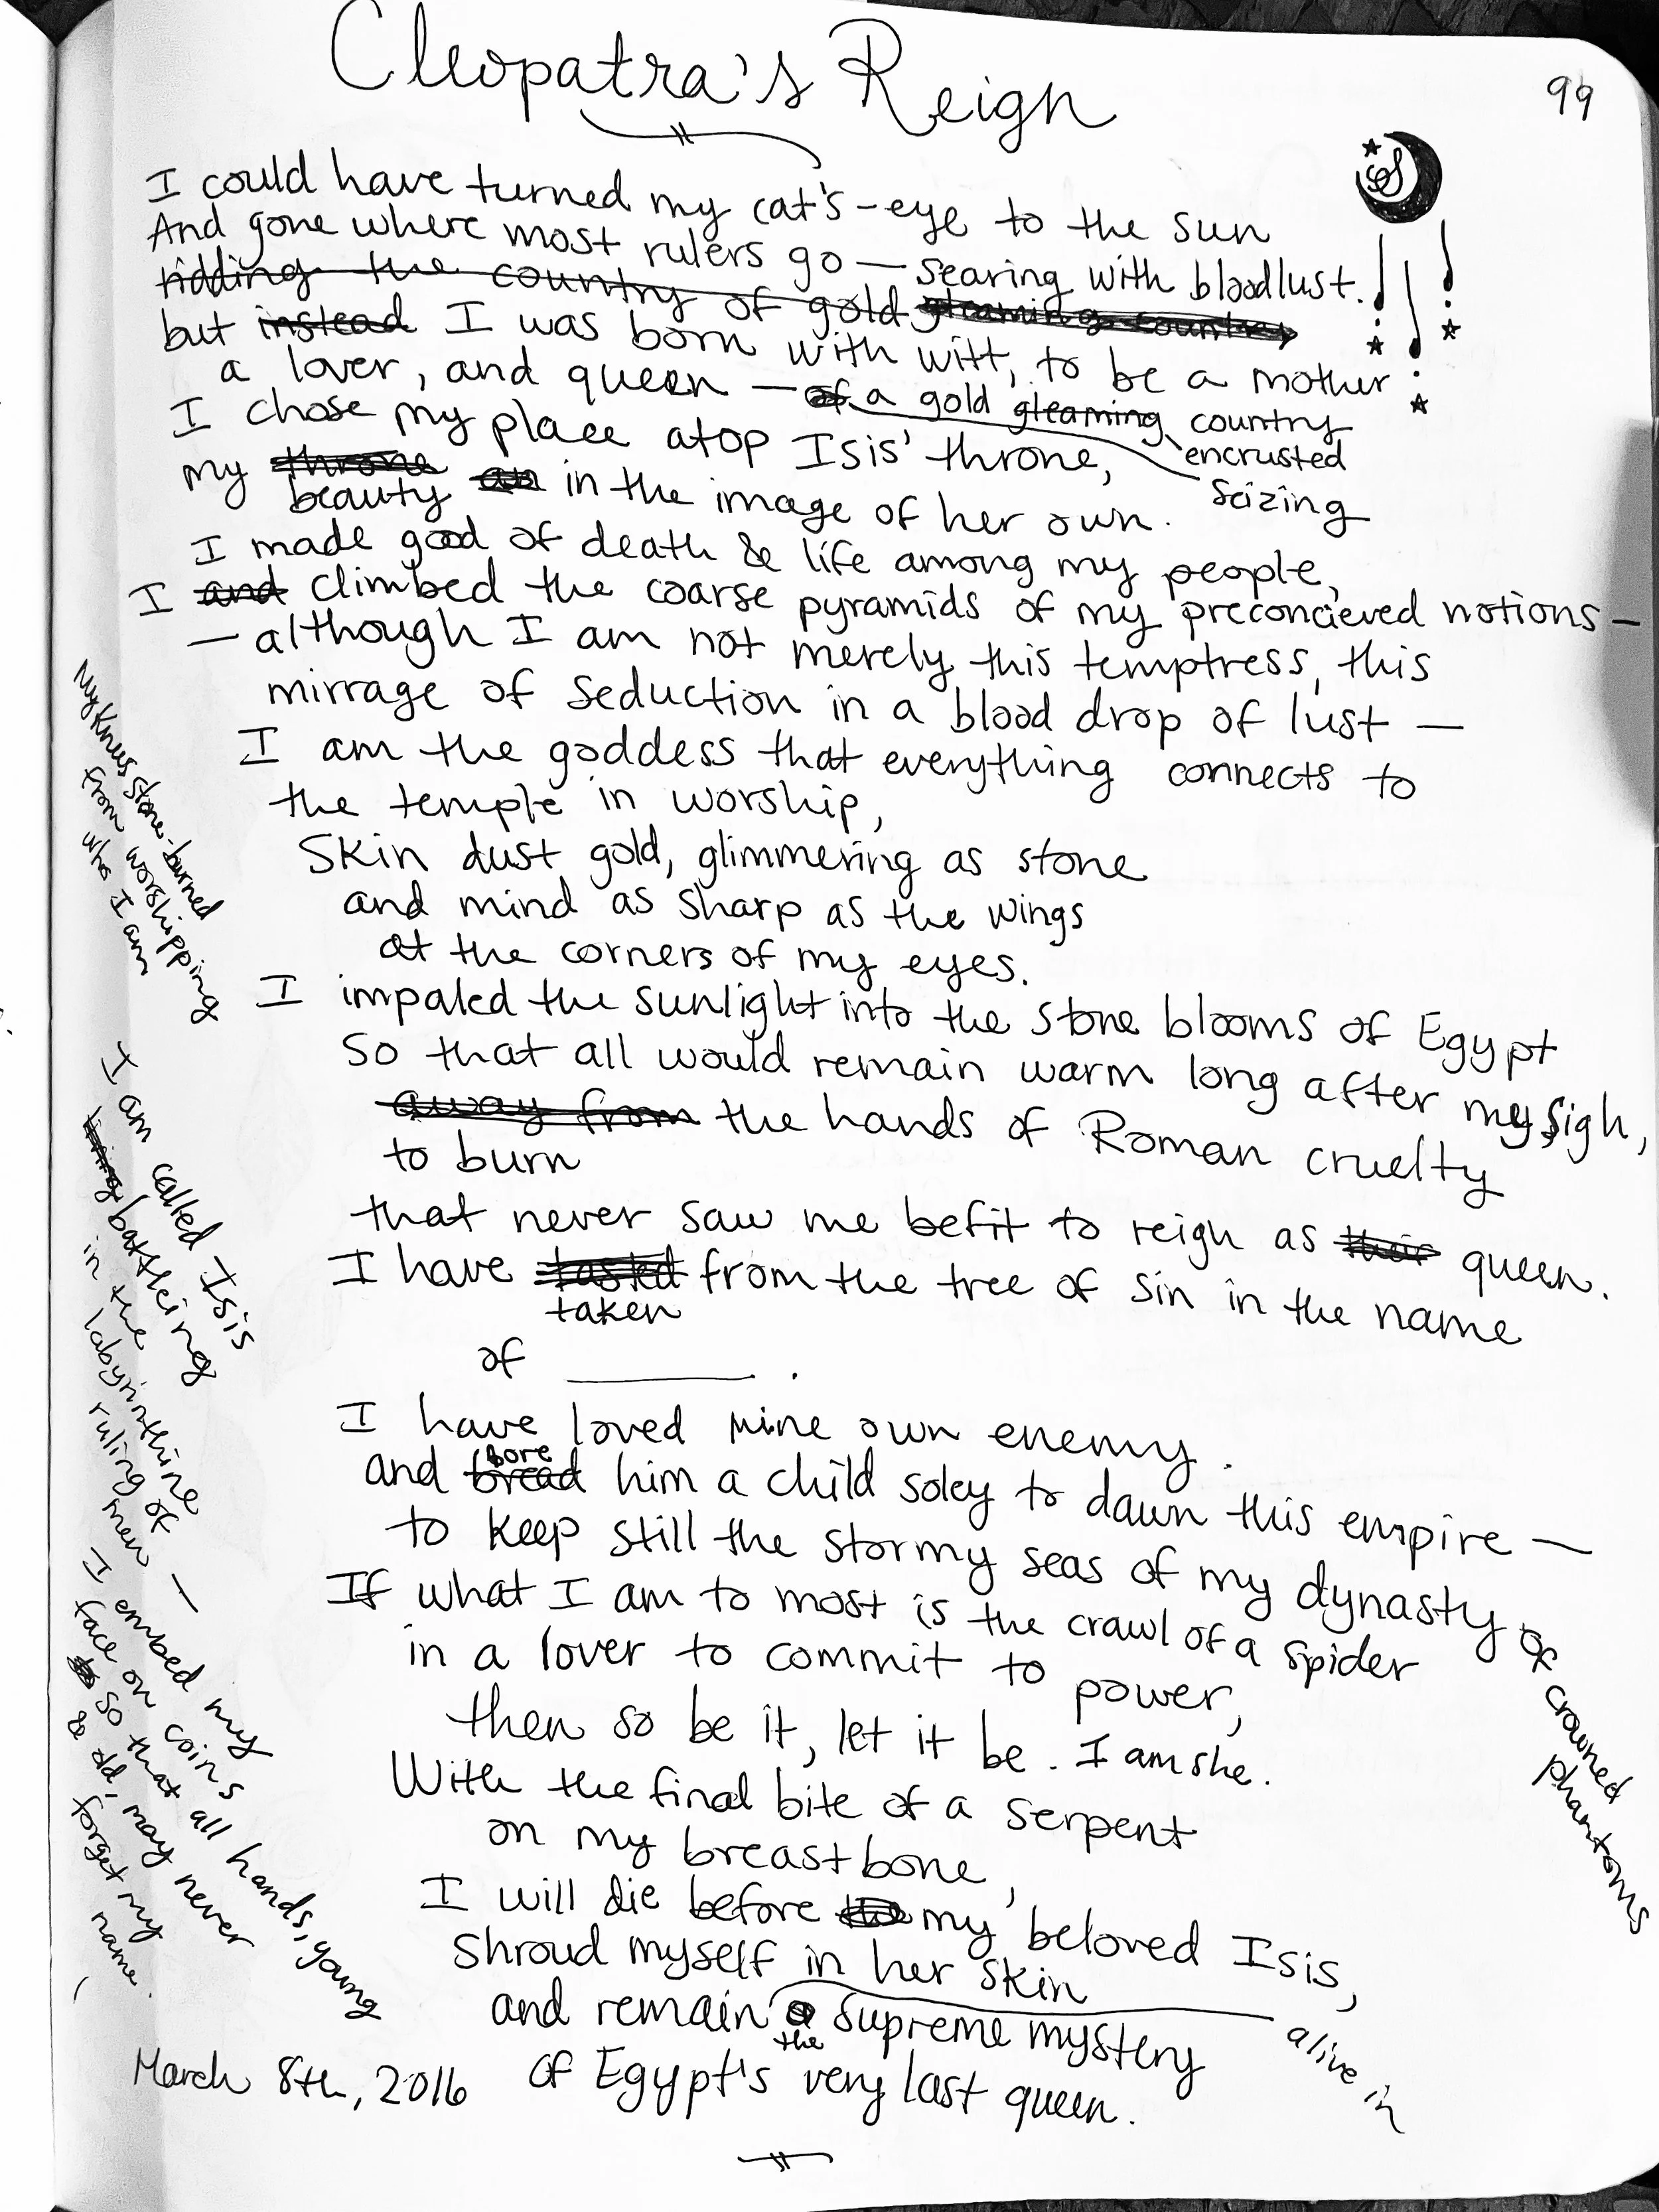 Cleopatra's Reign
99
I could have turned my cat's-eye to the sun
And gone where most rulers go — searing with bloodlust.
ridding the country of gold gleaming country
but instead I was born with witt, to be a mother
a lover, and queen — of a gold gleaming country
encrusted
seizing
I chose my place atop Isis' throne,
my throne an in the image of her own.
beauty
I made good of death & life among my people,
I and climbed the coarse pyramids of my preconcieved notions —
— although I am not merely this temptress, this
mirrage of seduction in a blood drop of lust —
I am the goddess that everything connects to
the temple in worship,
skin dust gold, glimmering as stone
and mind as sharp as the wings
at the corners of my eyes.
I impaled the sunlight into the stone blooms of Egypt
so that all would remain warm long after my sigh,
away from the hands of Roman cruelty
to burn
that never saw me befit to reign as their queen.
I have tasted from the tree of sin in the name
taken
of ________.
I have loved mine own enemy.
and bread him a child soley to dawn this empire —
bore
to keep still the stormy seas of my dynasty of crowned phantoms
If what I am to most is the crawl of a spider
in a lover to commit to power,
then so be it, let it be. I am she.
With the final bite of a serpent
on my breastbone,
I will die before the my beloved Isis,
shroud myself in her skin
and remain a supreme mystery
the
alive in
of Egypt's very last queen.
March 8th, 2016
My knees stone-burned
from worshipping
who I am
I am called Isis
battleing
in the
labyrinthine
ruling of
men —
I embed my
face on coins
so that all hands, young
& old, may never
forget my
name.